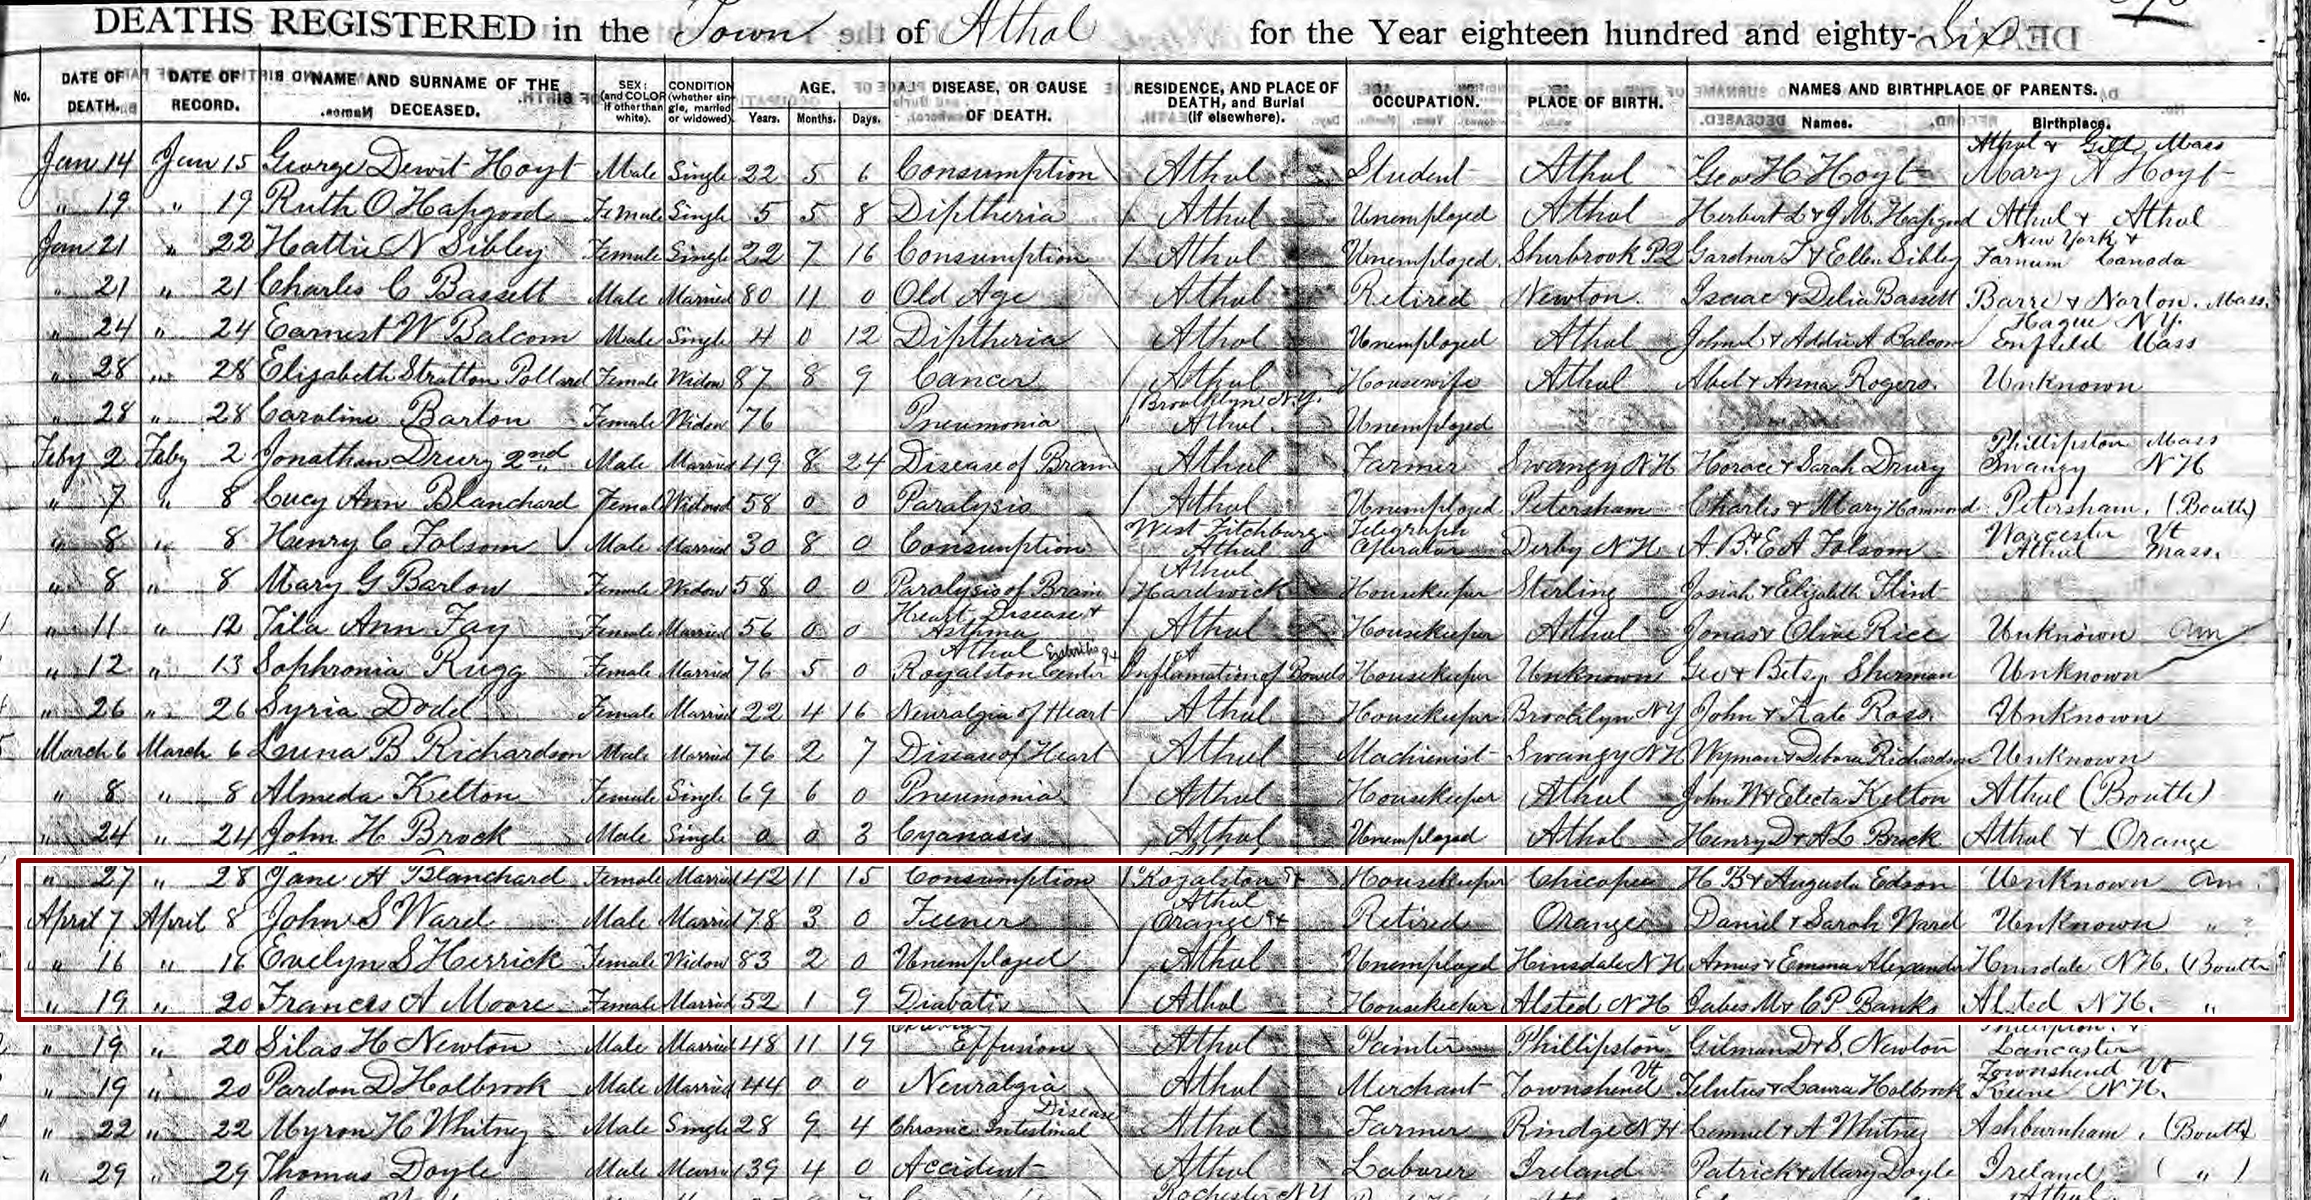 DEATHS REGISTERED in the Town of Athol for the Year eighteen hundred and eighty-Six
No. DATE OF DEATH. DATE OF RECORD. NAME AND SURNAME OF THE DECEASED. SEX: (and COLOR if other than white). CONDITION (whether single, married or widowed). AGE. Years. Months. Days. DISEASE, OR CAUSE OF DEATH. RESIDENCE, AND PLACE OF DEATH, and Burial (if elsewhere). OCCUPATION. PLACE OF BIRTH. NAMES AND BIRTHPLACE OF PARENTS. Names. Birthplace.
Jan 14 Jan 15 George Dewit Hoyt Male Single 22 5 6 Consumption Athol Student Athol Geo H Hoyt Athol & Gill Mass Mary A Hoyt
" 19 " 19 Ruth O Hapgood Female Single 5 5 8 Diptheria Athol Unemployed Athol Herbert L & J M. Hapgood Athol & Athol
Jan 21 " 22 Hattie N Sibley Female Single 22 7 16 Consumption Athol Unemployed Sherbrook P.Q Gardner T & Ellen Sibley New York & Farnum Canada
" 21 " 21 Charles C Bassett Male Married 80 11 0 Old Age Athol Retired Newton Isaac & Delia Bassett Barre & Norton. Mass.
" 24 " 24 Earnest W Balcom Male Single 4 0 12 Diptheria Athol Unemployed Athol John L & Addie A Balcom Hague N.Y. Enfield Mass
" 28 " 28 Elizabeth Stratton Pollard Female Widow 87 8 9 Cancer Athol Housewife Athol Abel & Anna Rogers. Unknown
" 28 " 28 Caroline Barton Female Widow 76 Pneumonia Brooklyn N.Y. Athol. Unemployed
Feby 2 Feby 2 Jonathan Drury 2nd Male Married 49 8 24 Disease of Brain Athol Farmer Swanzy N H Horace & Sarah Drury Phillipston Mass Swanzy N H
" 7 " 8 Lucy Ann Blanchard Female Widowd 58 0 0 Paralysis Athol Unemployed Petersham Charles & Mary Hammond Petersham. (Bouth)
" 8 " 8 Henry C Folsom Male Married 30 8 0 Consumption West Fitchburg Athol Telegraph Operator Derby N H. A. B. & E A Folsom Worcester Vt Athol Mass.
" 8 " 8 Mary G Barlow Female Widow 58 0 0 Paralysis of Brain Athol Hardwick Housekeeper Sterling Josiah & Elizabeth Flint
" 11 " 12 Tila Ann Fay Female Married 56 0 0 Heart Disease & Asthma Athol Housekeeper Athol Jonas & Olive Rice Unknown Am
" 12 " 13 Sophronia Rugg Female Married 76 5 0 Athol Royalston Center Inflamation of Bowels Housekeeper Unknown Geo & Betsy Sherman Unknown
" 26 " 26 Syria Dodd Female Married 22 4 16 Neuralgia of Heart Athol Housekeeper Brooklyn N Y John & Kate Ross. Unknown
March 6 March 6 Luna B Richardson Male Married 76 2 7 Disease of Heart Athol Machienist Swanzy N H Wyman & Debora Richardson Unknown
" 8 " 8 Almeda Kelton Female Single 69 6 0 Pneumonia Athol Housekeeper Athol John W & Electa Kelton Athol (Bouth)
" 24 " 24 John H Brock Male Single 0 0 3 Cyanasis Athol Unemployed Athol Henry D & A L Brock Athol & Orange
" 27 " 28 Jane A Blanchard Female Married 42 11 15 Consumption Royalston & Athol Housekeeper Chicopee H B & Augusta Edson Unknown Am.
April 7 April 8 John S Ward Male Married 78 3 0 Feener Orange & Retired Orange Daniel & Sarah Ward Unknown "
" 16 " 16 Evelyn S Herrick Female Widow 83 2 0 Unemployed Athol Unemployed Hinsdale N H Amos & Emma Alexander Hinsdale N H. (Bouth
" 19 " 20 Frances A Moore Female Married 52 1 9 Diabatis Athol Housekeeper Alsted N H Jabes M & C P Banks Alsted N H. "
" 19 " 20 Silas H Newton Male Married 48 11 19 Effusion Athol Painter Phillipston Gilman D & S. Newton Phillipston. & Lancaster
" 19 " 20 Pardon D Holbrook Male Married 44 0 0 Neuralgia Athol Merchant Townshend Vt Telutus & Laura Holbrook Townshend Vt Keene N H.
" 22 " 22 Myron H Whitney Male Single 28 9 4 Chronic Intestinal Disease Athol Farmer Rindge N H Lemuel & A Whitney Ashburnham. (Bouth)
" 29 " 29 Thomas Doyle Male Married 39 4 0 Accident Athol Laborer Ireland Patrick & Mary Doyle Ireland ( " )
Rochester N Y Athol